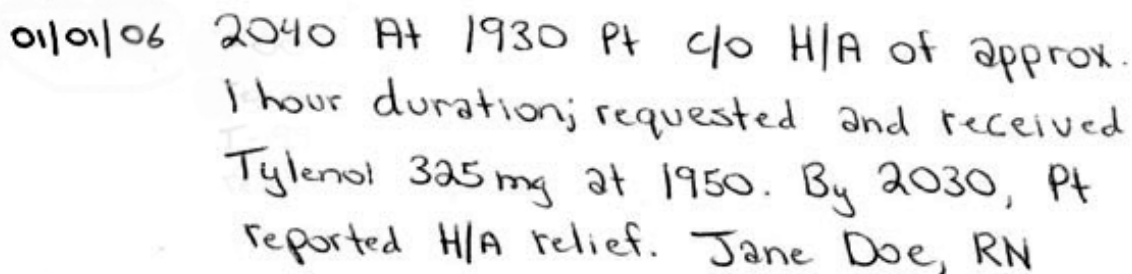 01/01/06 2040 At 1930 Pt c/o H/A of approx.
1 hour duration; requested and received
Tylenol 325 mg at 1950. By 2030, Pt
reported H/A relief. Jane Doe, RN